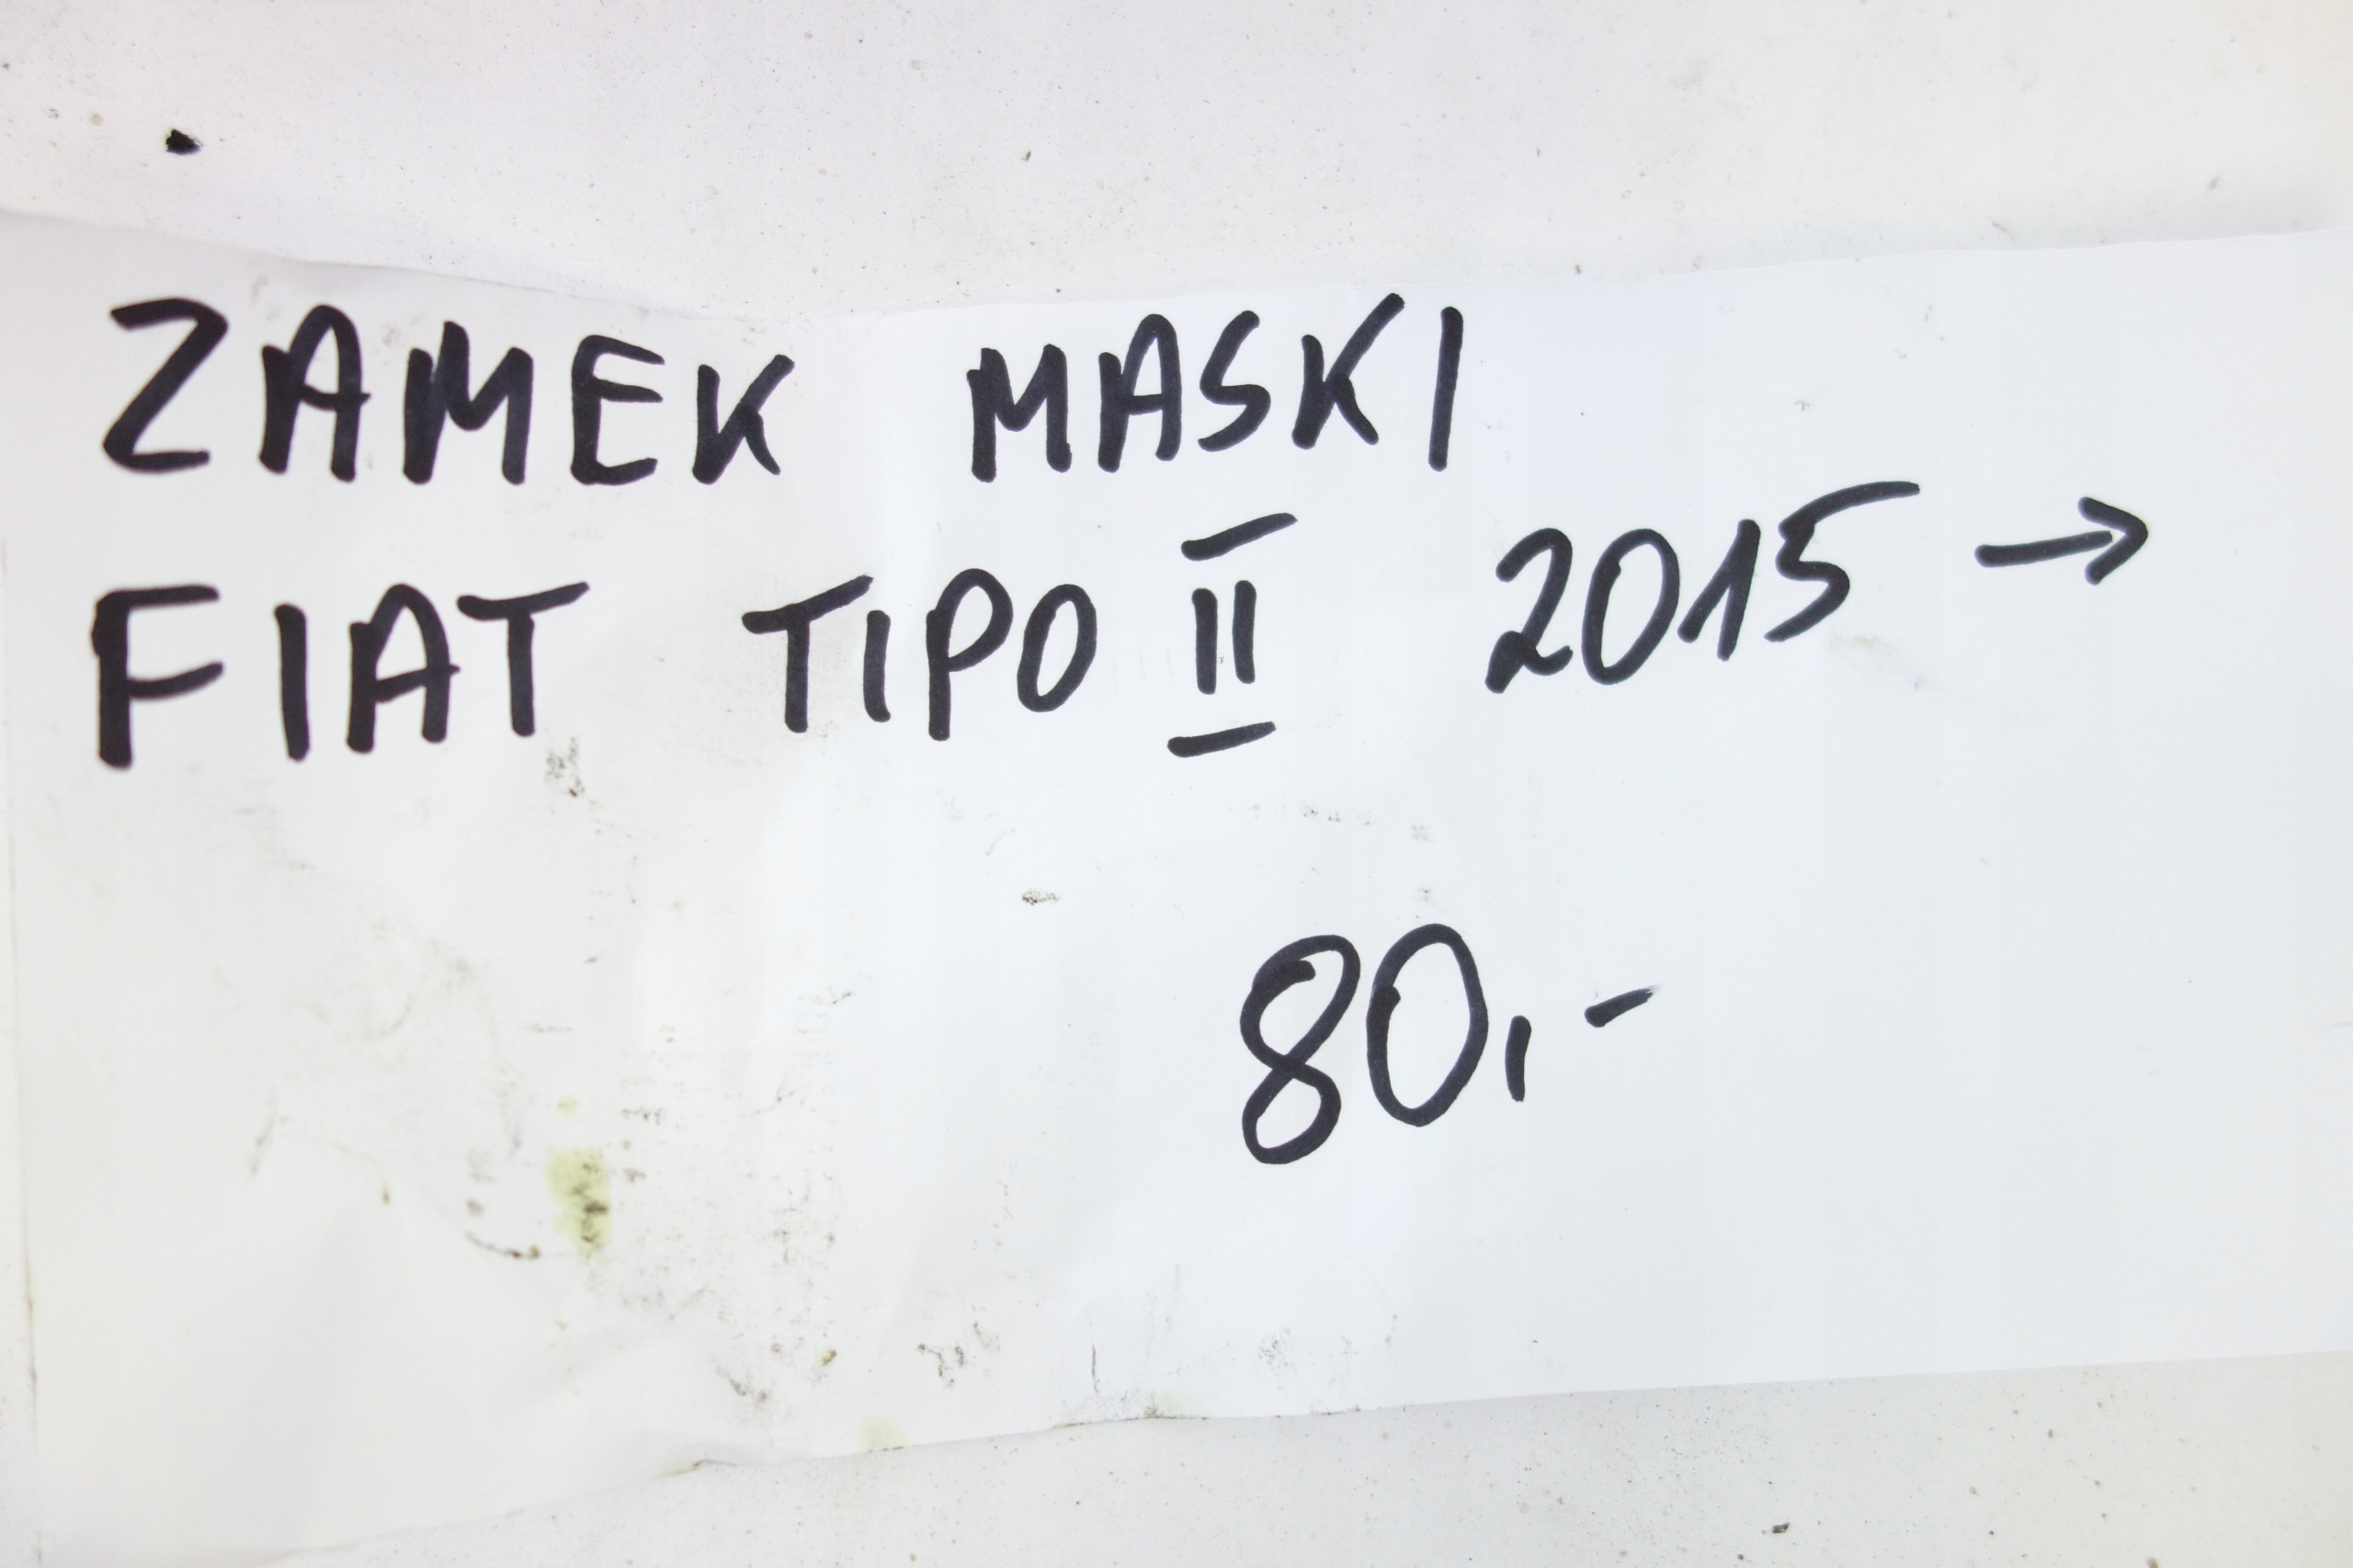 ZAMEK MASKI
FIAT TIPO II 2015 →
80,-